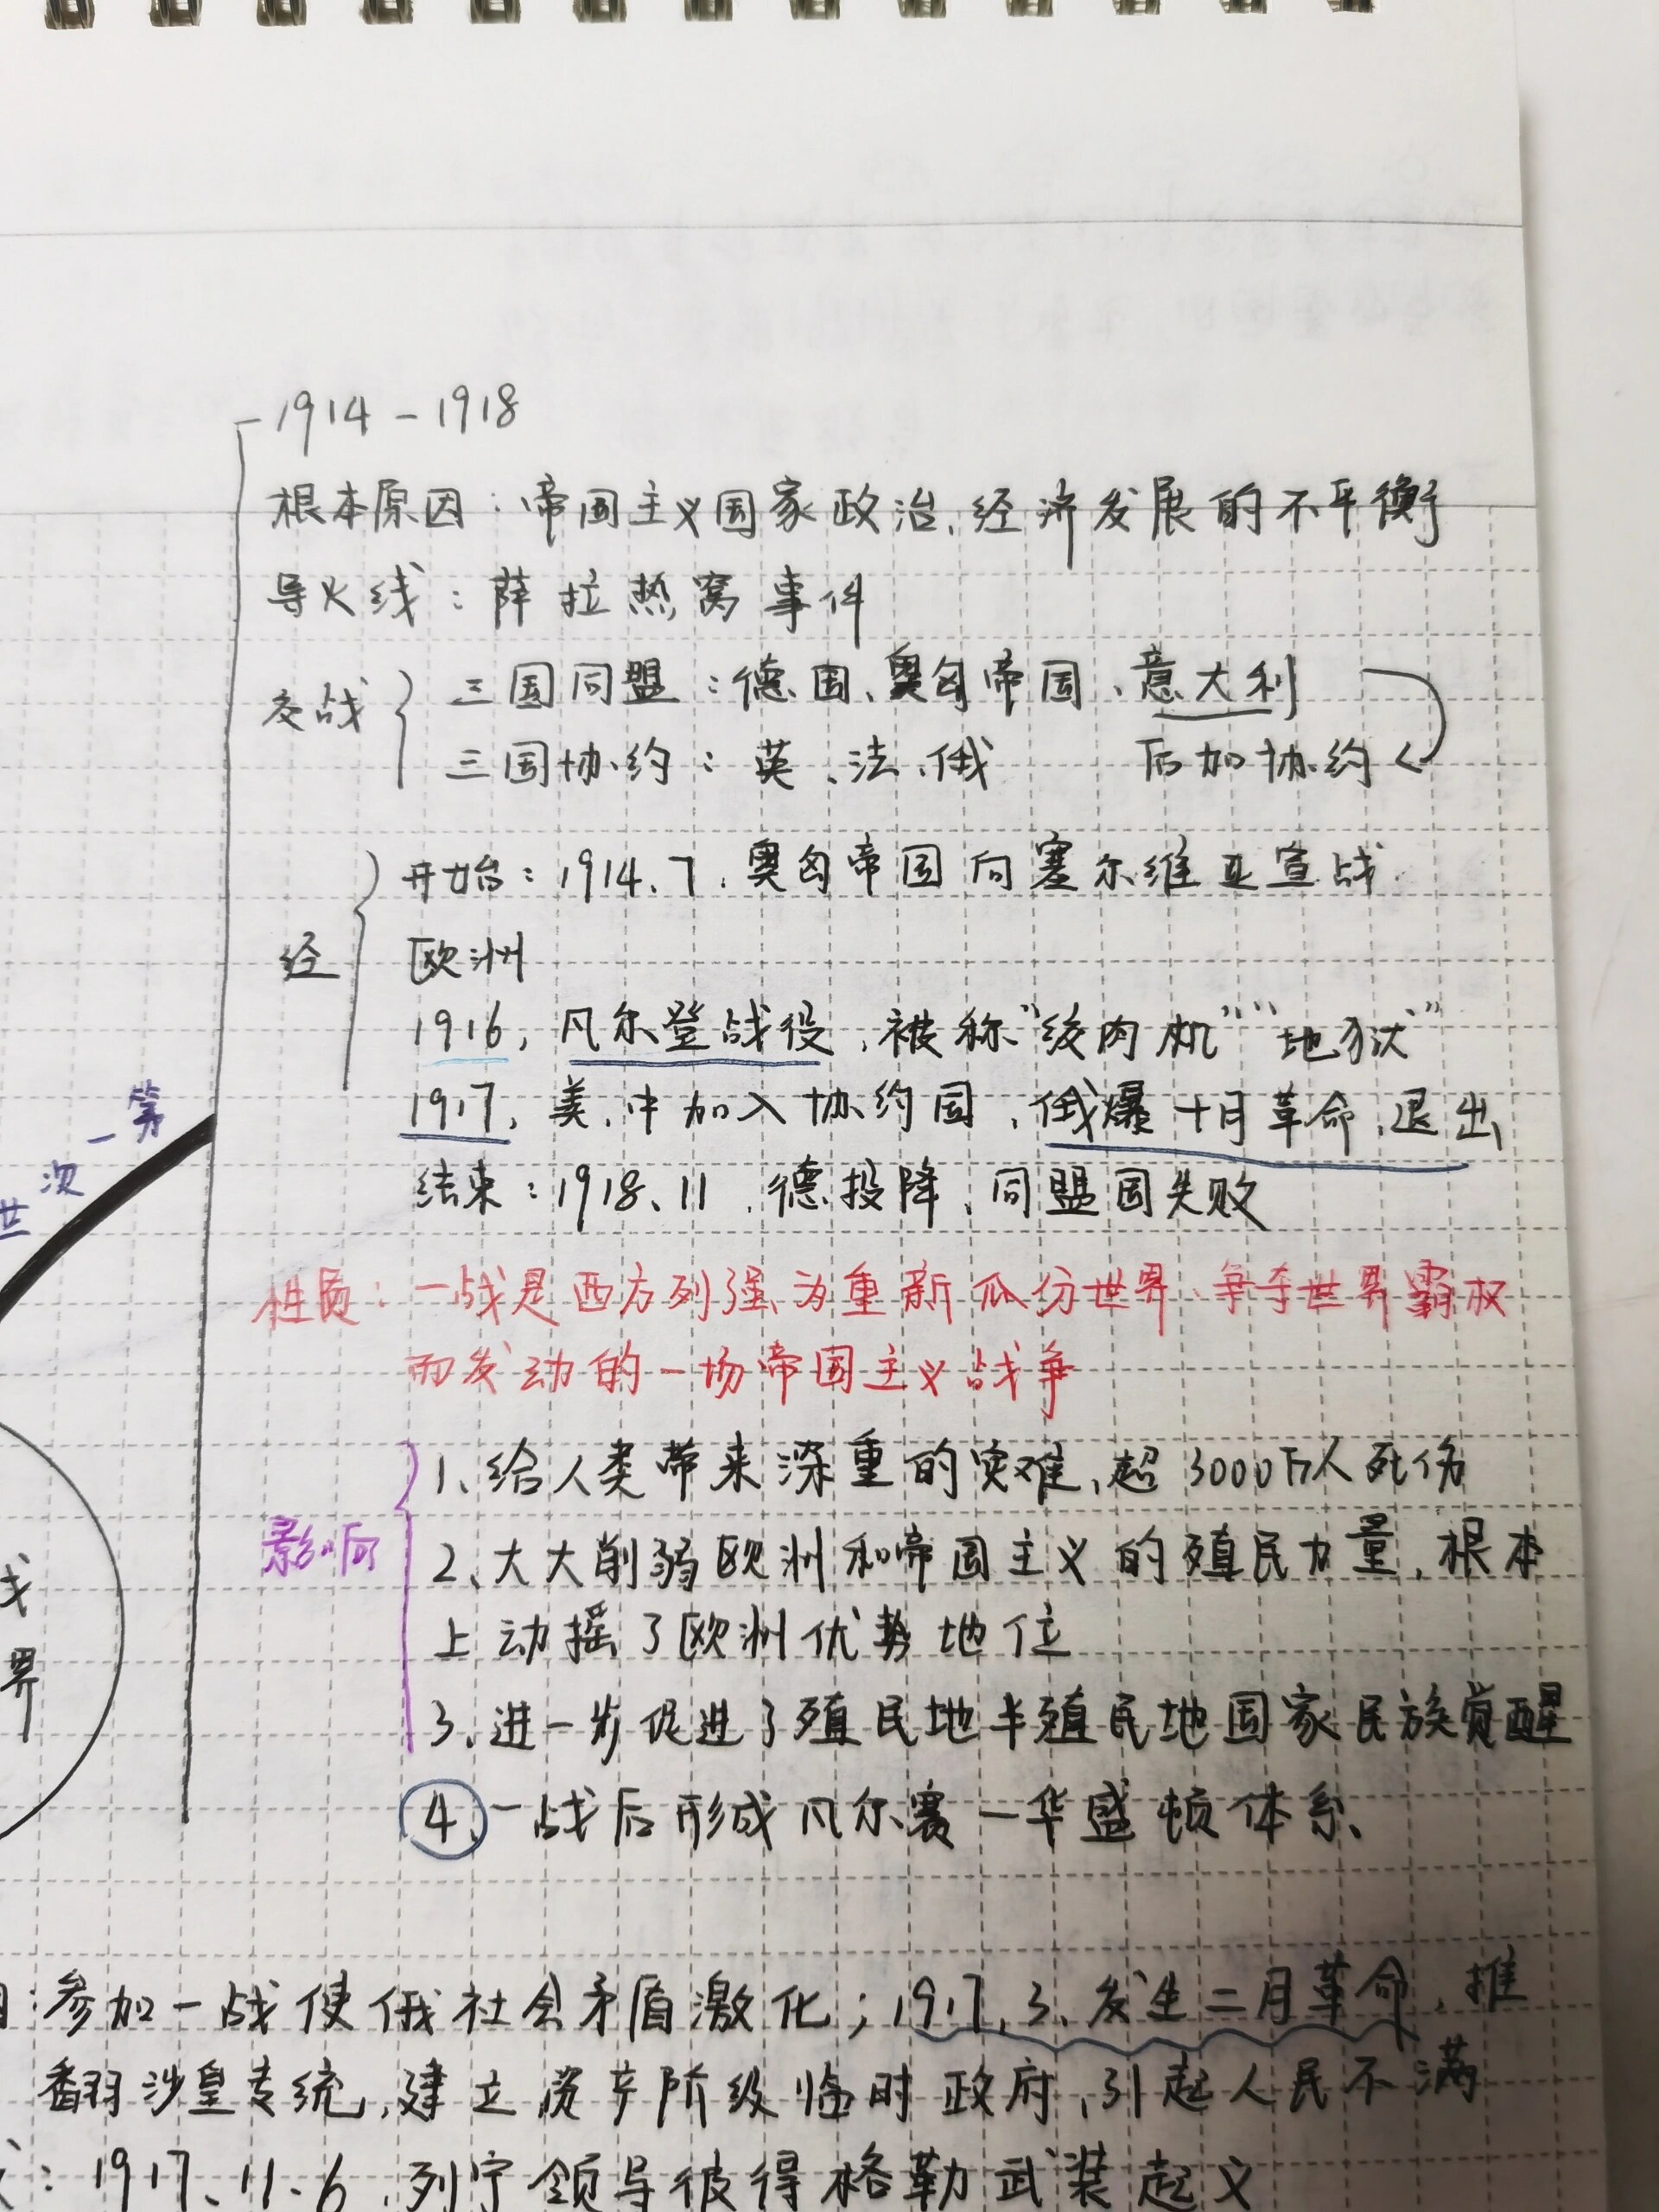 1914-1918
根本原因：帝国主义国家政治、经济发展的不平衡
导火线：萨拉热窝事件
交战
三国同盟：德国、奥匈帝国、意大利
三国协约：英、法、俄 后加协约
开始：1914.7.奥匈帝国向塞尔维亚宣战.
经 欧洲
1916，凡尔登战役，被称"绞肉机""地狱"
1917，美、中加入协约国，俄爆十月革命，退出
结束：1918、11，德投降、同盟国失败
第
一
次
世
性质：一战是西方列强为重新瓜分世界、争夺世界霸权
而发动的一场帝国主义战争
影响
1、给人类带来深重的灾难，超3000万人死伤
2、大大削弱欧洲和帝国主义的殖民力量，根本
上动摇了欧洲优势地位
3、进一步促进了殖民地半殖民地国家民族觉醒
4、一战后形成凡尔赛一华盛顿体系、
界
：参加一战使俄社会矛盾激化；1917.3.发生二月革命，推
翻沙皇专统，建立资产阶级临时政府，引起人民不满
：1917、11、6，列宁领导彼得格勒武装起义